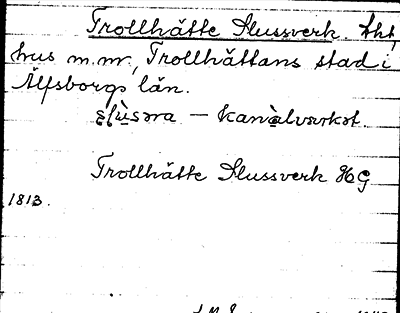 Trollhätte Slussverk. Kht,
hus m.m., Trollhättans stad i
Älfsborgs län.
slùsəra – kanàlvərkət.
Trollhätte Slussverk HG
1813.